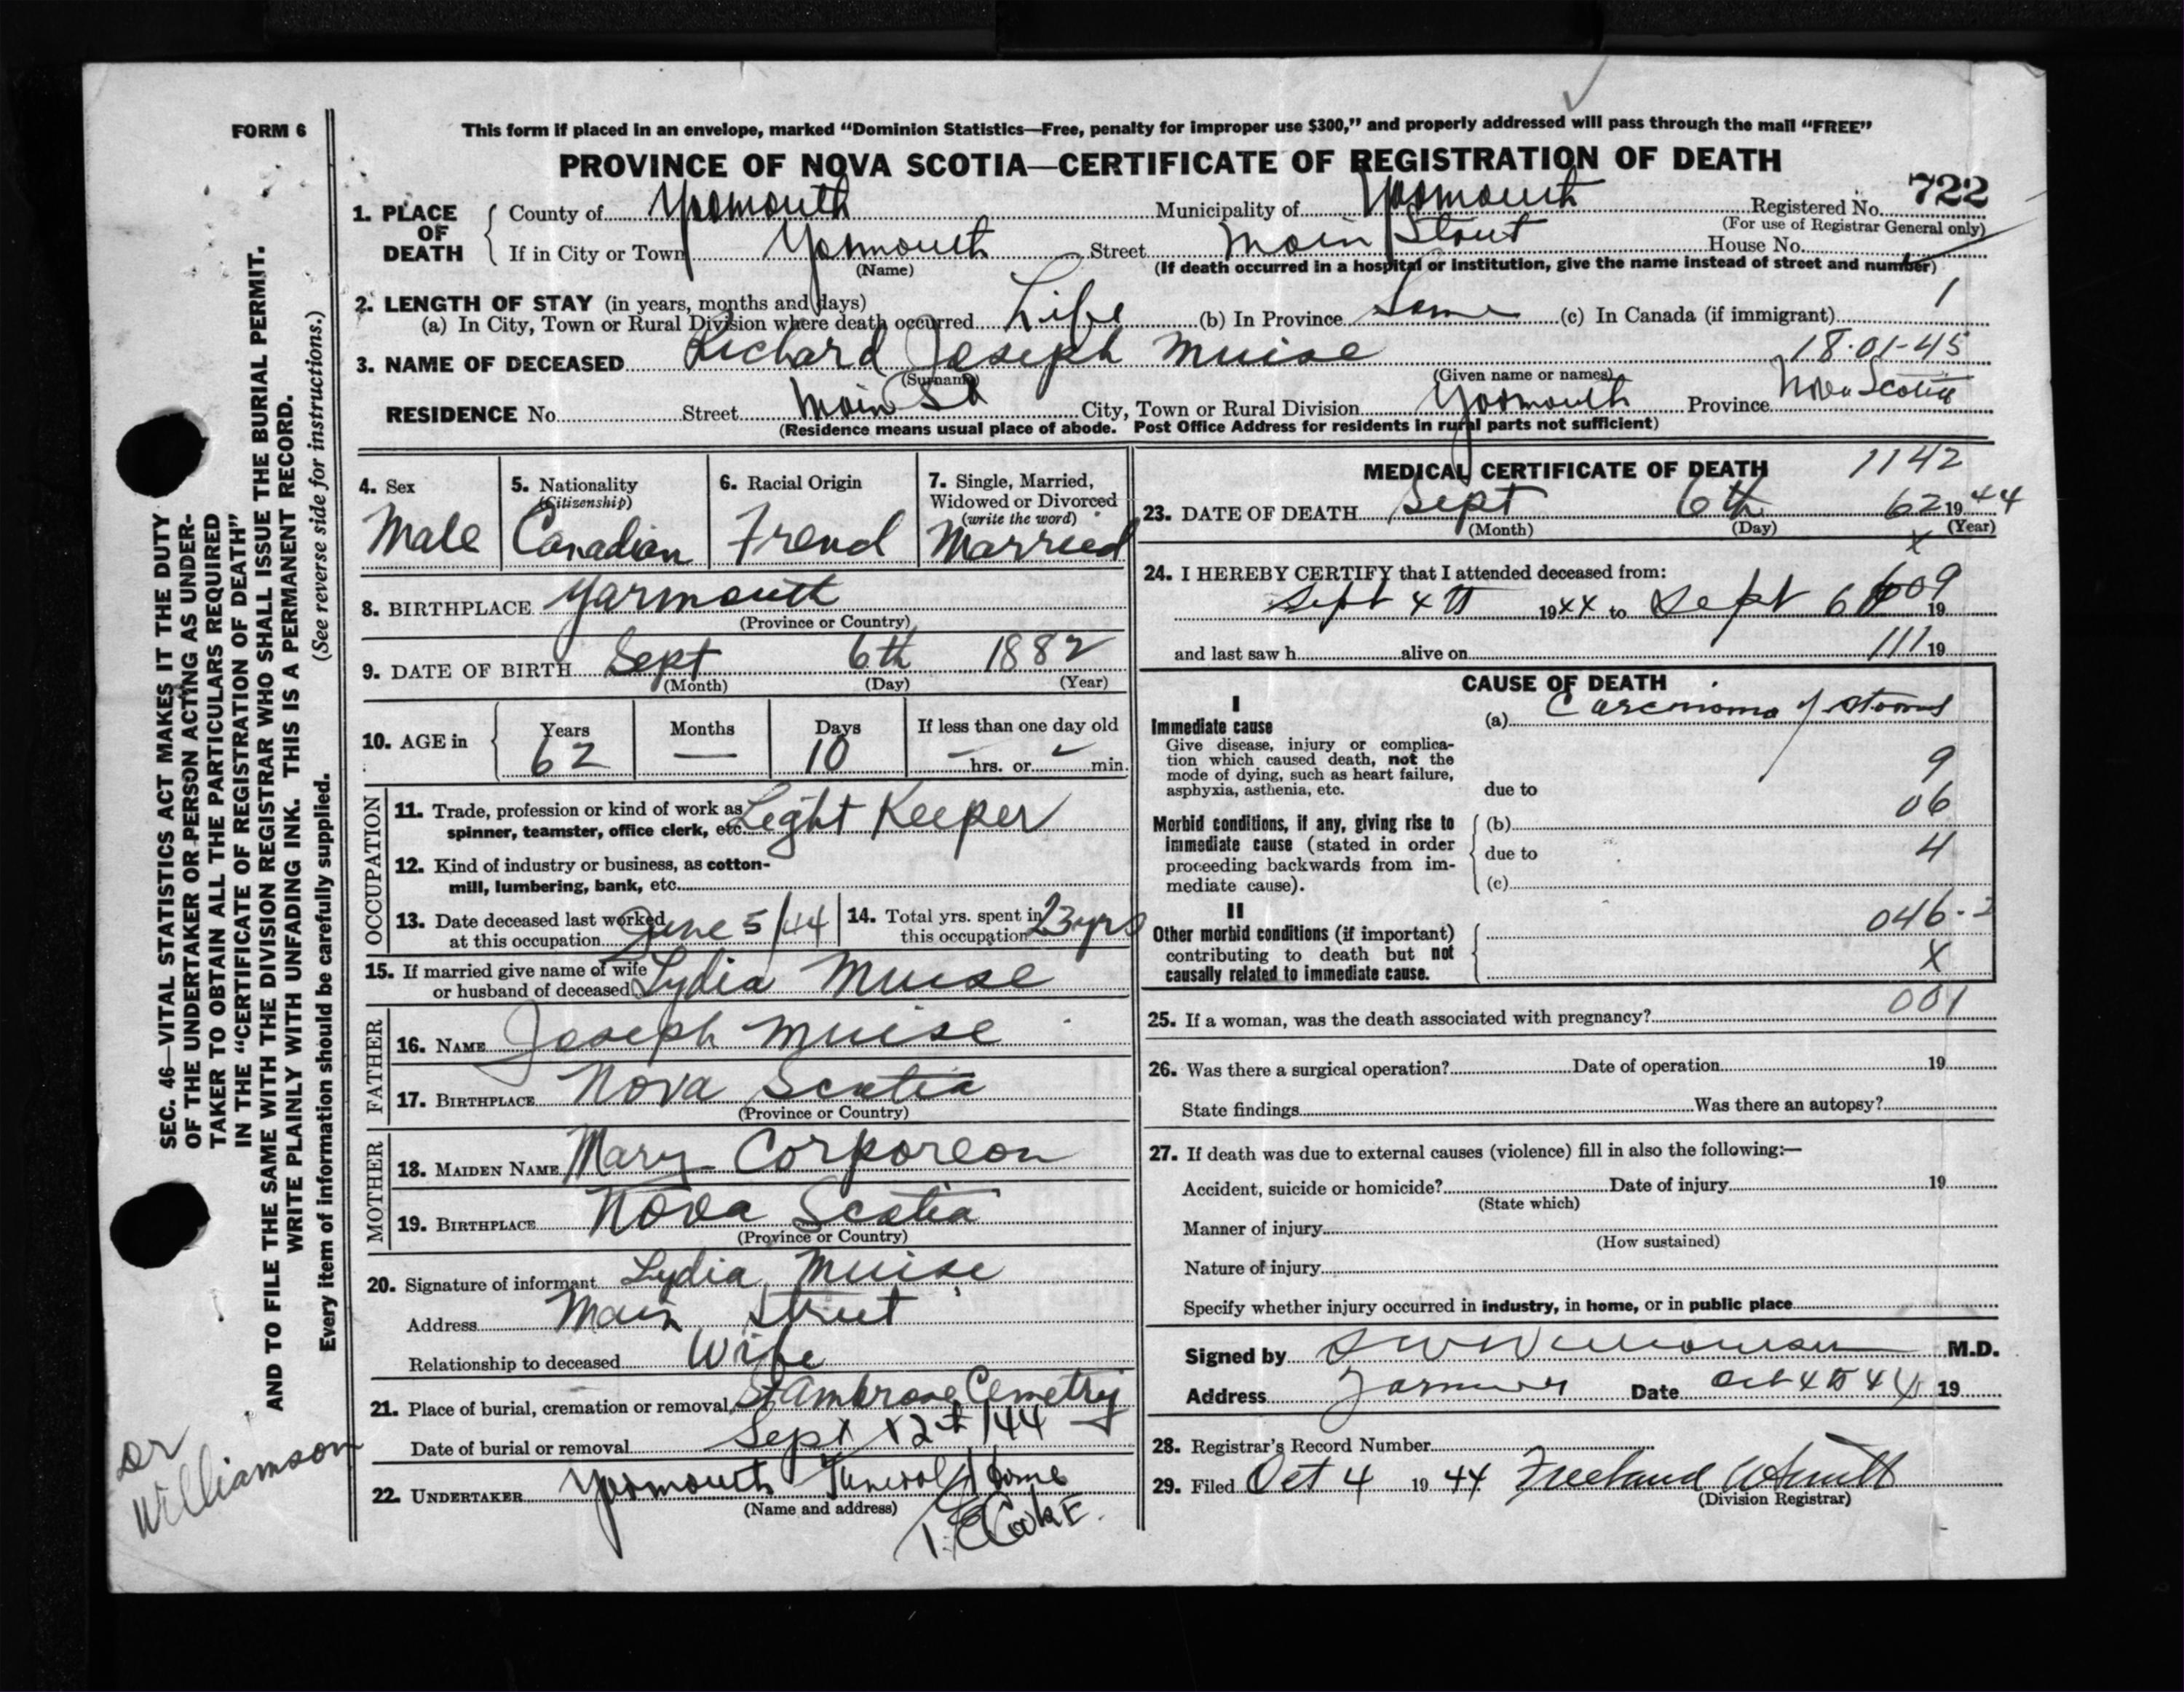 FORM 6
This form if placed in an envelope, marked “Dominion Statistics—Free, penalty for improper use $300,” and properly addressed will pass through the mail “FREE”
PROVINCE OF NOVA SCOTIA—CERTIFICATE OF REGISTRATION OF DEATH
722
1. PLACE OF DEATH
County of Yarmouth Municipality of Yarmouth Registered No.
(For use of Registrar General only)
If in City or Town Yarmouth Street Main Street House No.
(Name) (If death occurred in a hospital or institution, give the name instead of street and number)
2. LENGTH OF STAY (in years, months and days)
(a) In City, Town or Rural Division where death occurred Life (b) In Province Same (c) In Canada (if immigrant) 1
3. NAME OF DECEASED Richard Joseph Muise 18-01-45
(Surname) (Given name or names)
RESIDENCE No. Street Main St City, Town or Rural Division Yarmouth Province Nova Scotia
(Residence means usual place of abode. Post Office Address for residents in rural parts not sufficient)
4. Sex
Male
5. Nationality
(Citizenship)
Canadian
6. Racial Origin
Frend
7. Single, Married,
Widowed or Divorced
(write the word)
Married
8. BIRTHPLACE Yarmouth
(Province or Country)
9. DATE OF BIRTH Sept 6th 1882
(Month) (Day) (Year)
10. AGE in
Years Months Days If less than one day old
62 — 10 — hrs. or — min.
OCCUPATION
11. Trade, profession or kind of work as Light Keeper
spinner, teamster, office clerk, etc.
12. Kind of industry or business, as cotton-
mill, lumbering, bank, etc.
13. Date deceased last worked
at this occupation June 5/44
14. Total yrs. spent in
this occupation 23 yrs
15. If married give name of wife
or husband of deceased Lydia Muise
FATHER
16. NAME Joseph Muise
17. BIRTHPLACE Nova Scotia
(Province or Country)
MOTHER
18. MAIDEN NAME Mary Corporeon
19. BIRTHPLACE Nova Scotia
(Province or Country)
20. Signature of informant Lydia Muise
Address Main Street
Relationship to deceased Wife
21. Place of burial, cremation or removal St Ambrose Cemetry
Date of burial or removal Sept 12th/44
22. UNDERTAKER Yarmouth Funeral Home
(Name and address)
MEDICAL CERTIFICATE OF DEATH 1142
23. DATE OF DEATH Sept 6th 62 1944
(Month) (Day) (Year)
x
24. I HEREBY CERTIFY that I attended deceased from:
Sept 4th 1944 to Sept 6th 609 19
and last saw h alive on 111 19
CAUSE OF DEATH
I
Immediate cause
(a) Carcinoma of
Give disease, injury or complica-
tion which caused death, not the
mode of dying, such as heart failure,
asphyxia, asthenia, etc.
due to
9
06
Morbid conditions, if any, giving rise to
immediate cause (stated in order
proceeding backwards from im-
mediate cause).
(b)
due to
4
(c)
II
Other morbid conditions (if important)
contributing to death but not
causally related to immediate cause.
046-2
X
25. If a woman, was the death associated with pregnancy? 001
26. Was there a surgical operation? Date of operation 19
State findings Was there an autopsy?
27. If death was due to external causes (violence) fill in also the following:—
Accident, suicide or homicide? Date of injury 19
(State which)
Manner of injury
(How sustained)
Nature of injury
Specify whether injury occurred in industry, in home, or in public place
Signed by Williamson M.D.
Address Yarmouth Date Oct 4th 44 19
28. Registrar's Record Number
29. Filed Oct 4 1944
(Division Registrar)
SEC. 46—VITAL STATISTICS ACT MAKES IT THE DUTY
OF THE UNDERTAKER OR PERSON ACTING AS UNDER-
TAKER TO OBTAIN ALL THE PARTICULARS REQUIRED
IN THE “CERTIFICATE OF REGISTRATION OF DEATH”
AND TO FILE THE SAME WITH THE DIVISION REGISTRAR WHO SHALL ISSUE THE BURIAL PERMIT.
WRITE PLAINLY WITH UNFADING INK. THIS IS A PERMANENT RECORD.
Every item of information should be carefully supplied. (See reverse side for instructions.)
Dr
Williamson